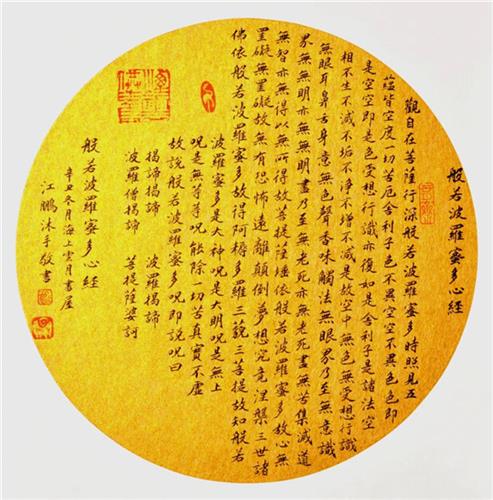 般若波羅蜜多心經
觀自在菩薩行深般若波羅蜜多時照見五
蘊皆空度一切苦厄舍利子色不異空空不異色色即
是空空即是色受想行識亦復如是舍利子是諸法空
相不生不滅不垢不淨不增不減是故空中無色無受想行識
無眼耳鼻舌身意無色聲香味觸法無眼界乃至無意識
界無無明亦無無明盡乃至無老死亦無老死盡無苦集滅道
無智亦無得以無所得故菩提薩埵依般若波羅蜜多故心無
罣礙無罣礙故無有恐怖遠離顛倒夢想究竟涅槃三世諸
佛依般若波羅蜜多故得阿耨多羅三藐三菩提故知般若
波羅蜜多是大神呪是大明呪是無上
呪是無等等呪能除一切苦真實不虛
故說般若波羅蜜多呪即說呪曰
揭諦揭諦 波羅揭諦
波羅僧揭諦 菩提薩婆訶
般若波羅蜜多心經
辛丑冬月海上雲月書屋
江鵬沐手敬書